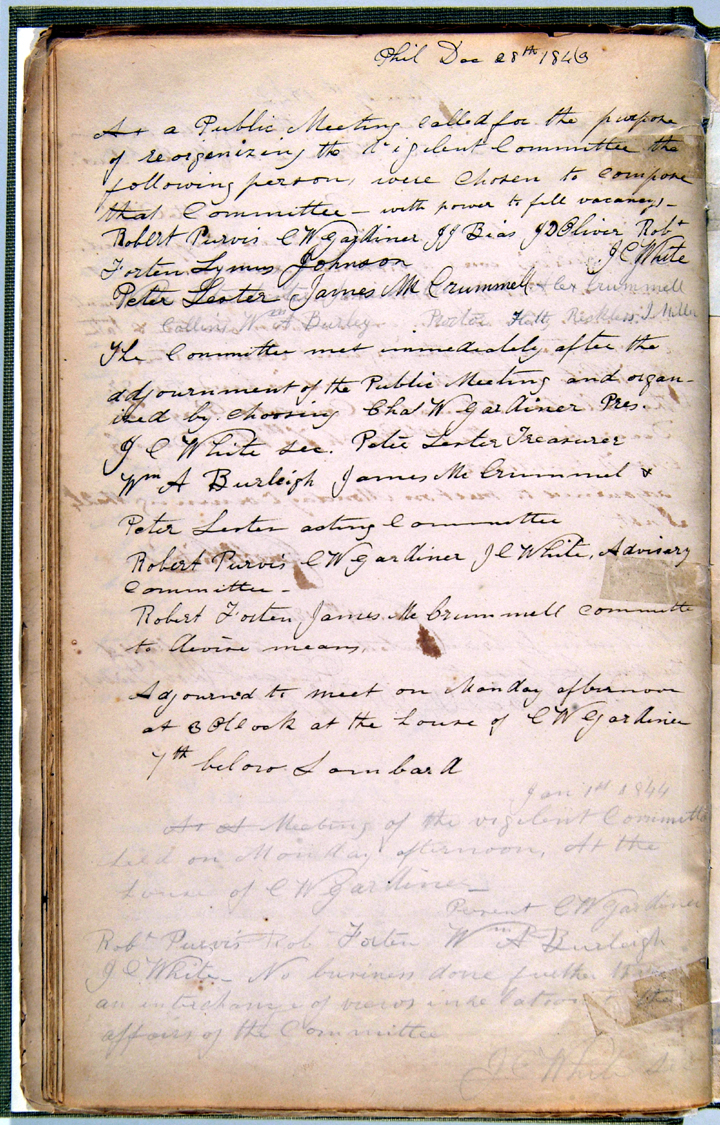 Phil Dec 28th 1843
At a Public Meeting called for the purpose
of reorganizing the Vigilent Committee the
following person, were chosen to compose
that Committee - with power to fill vacancys -
Robert Purvis C W Gardiner J J Bias J D Oliver Robt
Forten Lymus Johnson J C White
Peter Lester James Mc Crummell & Crummell
& Wm A Burley J. Miller
The Committee met immediately after the
adjournment of the Public Meeting and organ-
ized by choosing Cha W Gardiner Pres.
J C White sec. Peter Lester Treasurer
Wm A Burleigh James Mc Crummel &
Peter Lester acting Committee
Robert Purvis C W Gardiner J C White, Advisary
Committee -
Robert Forten, James Mc Crummell committe
to devise means,
Adjournd to meet on Monday afternoon
at 3 OClock at the house of C W Gardiner
7th below Lombard
Jan 1st 1844
At a Meeting of the vigilent Committe
held on Monday afternoon, At the
house of C W Gardiner
Present C W Gardiner
Robt Purvis Rob Forten Wm A Burleigh
J C White - No business done further than
an interchange of views in relation to the
affairs of the Committee
J C White Sec